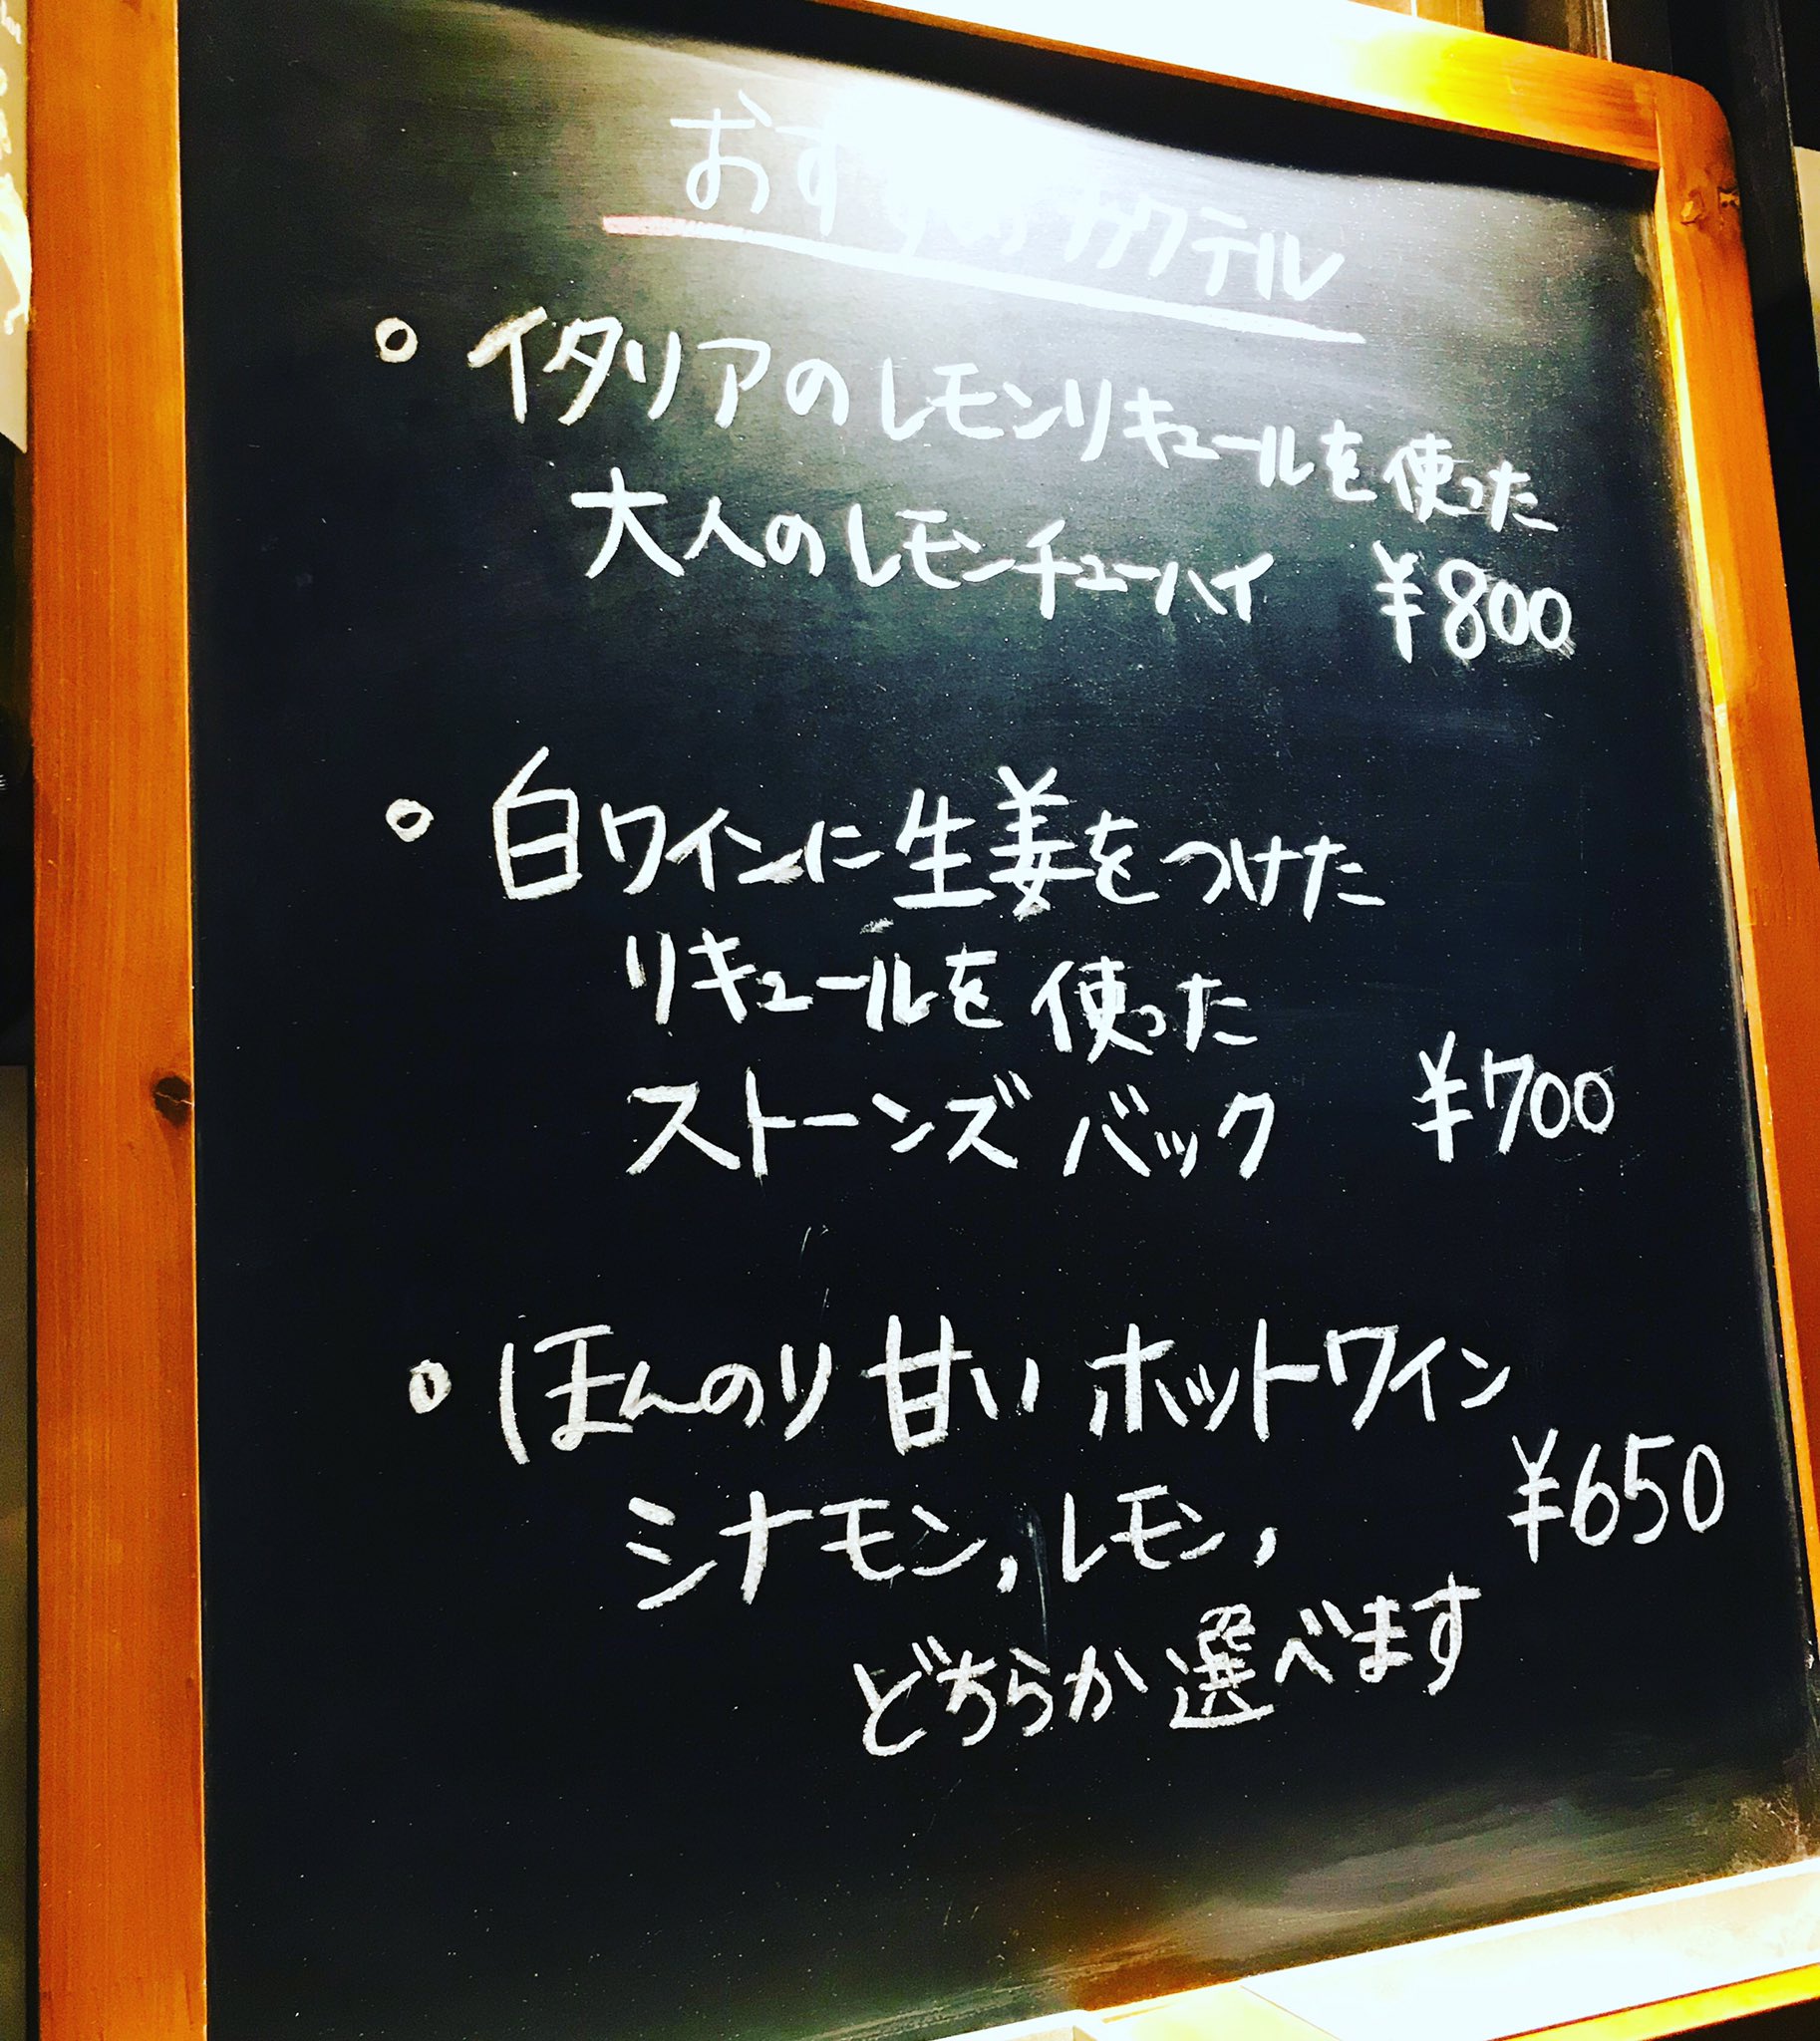 おすすめカクテル
○ イタリアのレモンリキュールを使った
大人のレモンチューハイ ¥800
○ 白ワインに生姜をつけた
リキュールを使った
ストーンズバック ¥700
○ ほんのり甘いホットワイン
シナモン, レモン, ¥650
どちらか選べます